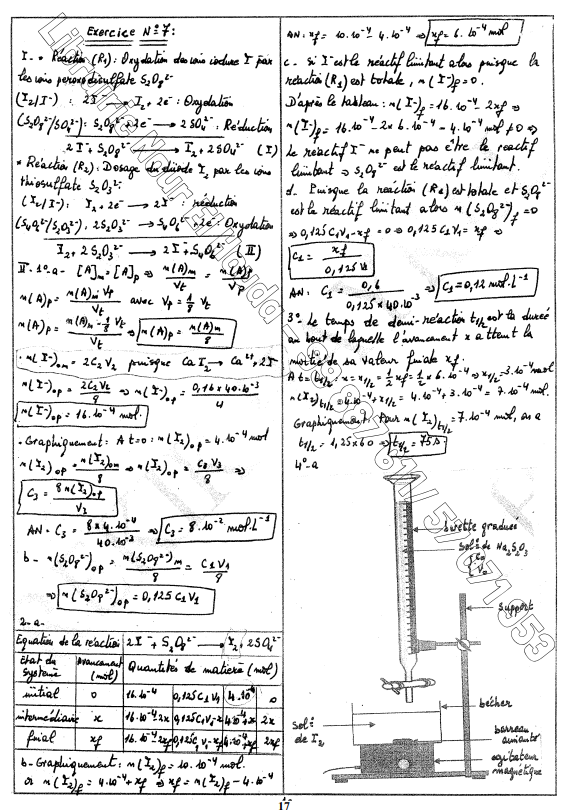 Exercice N° 7:
I- • Réaction (R1): Oxydation des ions iodure I⁻ par
les ions peroxodisulfate S₂O₈²⁻
(I₂/I⁻) : 2I⁻ → I₂ + 2e⁻ : Oxydation
(S₂O₈²⁻/SO₄²⁻): S₂O₈²⁻ + 2e⁻ → 2SO₄²⁻ : Réduction
2I⁻ + S₂O₈²⁻ → I₂ + 2SO₄²⁻ (I)
* Réaction (R2): Dosage du diiode I₂ par les ions
thiosulfate S₂O₃²⁻:
(I₂/I⁻): I₂ + 2e⁻ → 2I⁻ : réduction
(S₄O₆²⁻/S₂O₃²⁻): 2S₂O₃²⁻ → S₄O₆²⁻ + 2e⁻: Oxydation
I₂ + 2S₂O₃²⁻ → 2I⁻ + S₄O₆²⁻ (II)
II- 1°- a- [A]m = [A]p ⇒ n(A)m/Vt = n(A)p/Vp
n(A)p = n(A)m Vp/Vt avec Vp = 1/8 Vt
n(A)p = n(A)m · 1/8 Vt/Vt ⇒ n(A)p = n(A)m/8
• n(I⁻)om = 2C₂V₂ puisque CaI₂ → Ca²⁺ + 2I⁻
n(I⁻)op = 2C₂V₂/8 ⇒ n(I⁻)op = 0,16 × 40.10⁻³/4
n(I⁻)op = 16.10⁻⁴ mol.
• Graphiquement: A t=0: n(I₂)op = 4.10⁻⁴ mol
n(I₂)op = n(I₂)om/8 ⇒ n(I₂)op = C₃V₃/8 ⇒
C₃ = 8n(I₂)op/V₃
AN: C₃ = 8×4.10⁻⁴/40.10⁻³ ⇒ C₃ = 8.10⁻² mol.L⁻¹
b- n(S₂O₈²⁻)op = n(S₂O₈²⁻)m/8 = C₁V₁/8
⇒ n(S₂O₈²⁻)op = 0,125 C₁V₁
2- a-
Equation de la réaction 2I⁻ + S₂O₈²⁻ → I₂ + 2SO₄²⁻
Etat du système Avancement (mol) Quantités de matière (mol)
initial 0 16.10⁻⁴ 0,125C₁V₁ 4.10⁻⁴ 0
intermédiaire x 16.10⁻⁴-2x 0,125C₁V₁-x 4.10⁻⁴+x 2x
final xf 16.10⁻⁴-2xf 0,125C₁V₁-xf 4.10⁻⁴+xf 2xf
b- Graphiquement: n(I₂)f = 10.10⁻⁴ mol.
or n(I₂)f = 4.10⁻⁴ + xf ⇒ xf = n(I₂)f - 4.10⁻⁴
AN: xf = 10.10⁻⁴ - 4.10⁻⁴ ⇒ xf = 6.10⁻⁴ mol
c- si I⁻ est le réactif limitant alors puisque la
réaction (R1) est totale, n(I⁻)f = 0.
D'après le tableau: n(I⁻)f = 16.10⁻⁴ - 2xf ⇒
n(I⁻)f = 16.10⁻⁴ - 2×6.10⁻⁴ = 4.10⁻⁴ mol ≠ 0 ⇒
Le réactif I⁻ ne peut pas être le reactif
limitant ⇒ S₂O₈²⁻ est le réactif limitant.
d- Puisque la réaction (R1) est totale et S₂O₈²⁻
est le réactif limitant alors n(S₂O₈²⁻)f = 0
⇒ 0,125C₁V₁ - xf = 0 ⇒ 0,125C₁V₁ = xf ⇒
C₁ = xf/0,125V₁
AN: C₁ = /0,125×40.10⁻³ ⇒ C₁ = 0,12 mol.L⁻¹
3°- Le temps de demi-réaction t1/2 est la durée
au bout de laquelle l'avancement x atteint la
moitié de sa valeur finale xf.
A t = t1/2 : x = x1/2 = 1/2 xf = 1/2 × 6.10⁻⁴ ⇒ x1/2 = 3.10⁻⁴ mol
n(I₂)t1/2 = 4.10⁻⁴ + x1/2 = 4.10⁻⁴ + 3.10⁻⁴ = 7.10⁻⁴ mol.
Graphiquement: Pour n(I₂)t1/2 = 7.10⁻⁴ mol, on a
t1/2 = 1,25×60 ⇒ t1/2 = 75 s
4°-a
burette graduée
sol° de Na₂S₂O₃
support
bécher
sol° de I₂
barreau aimanté
agitateur magnétique
17